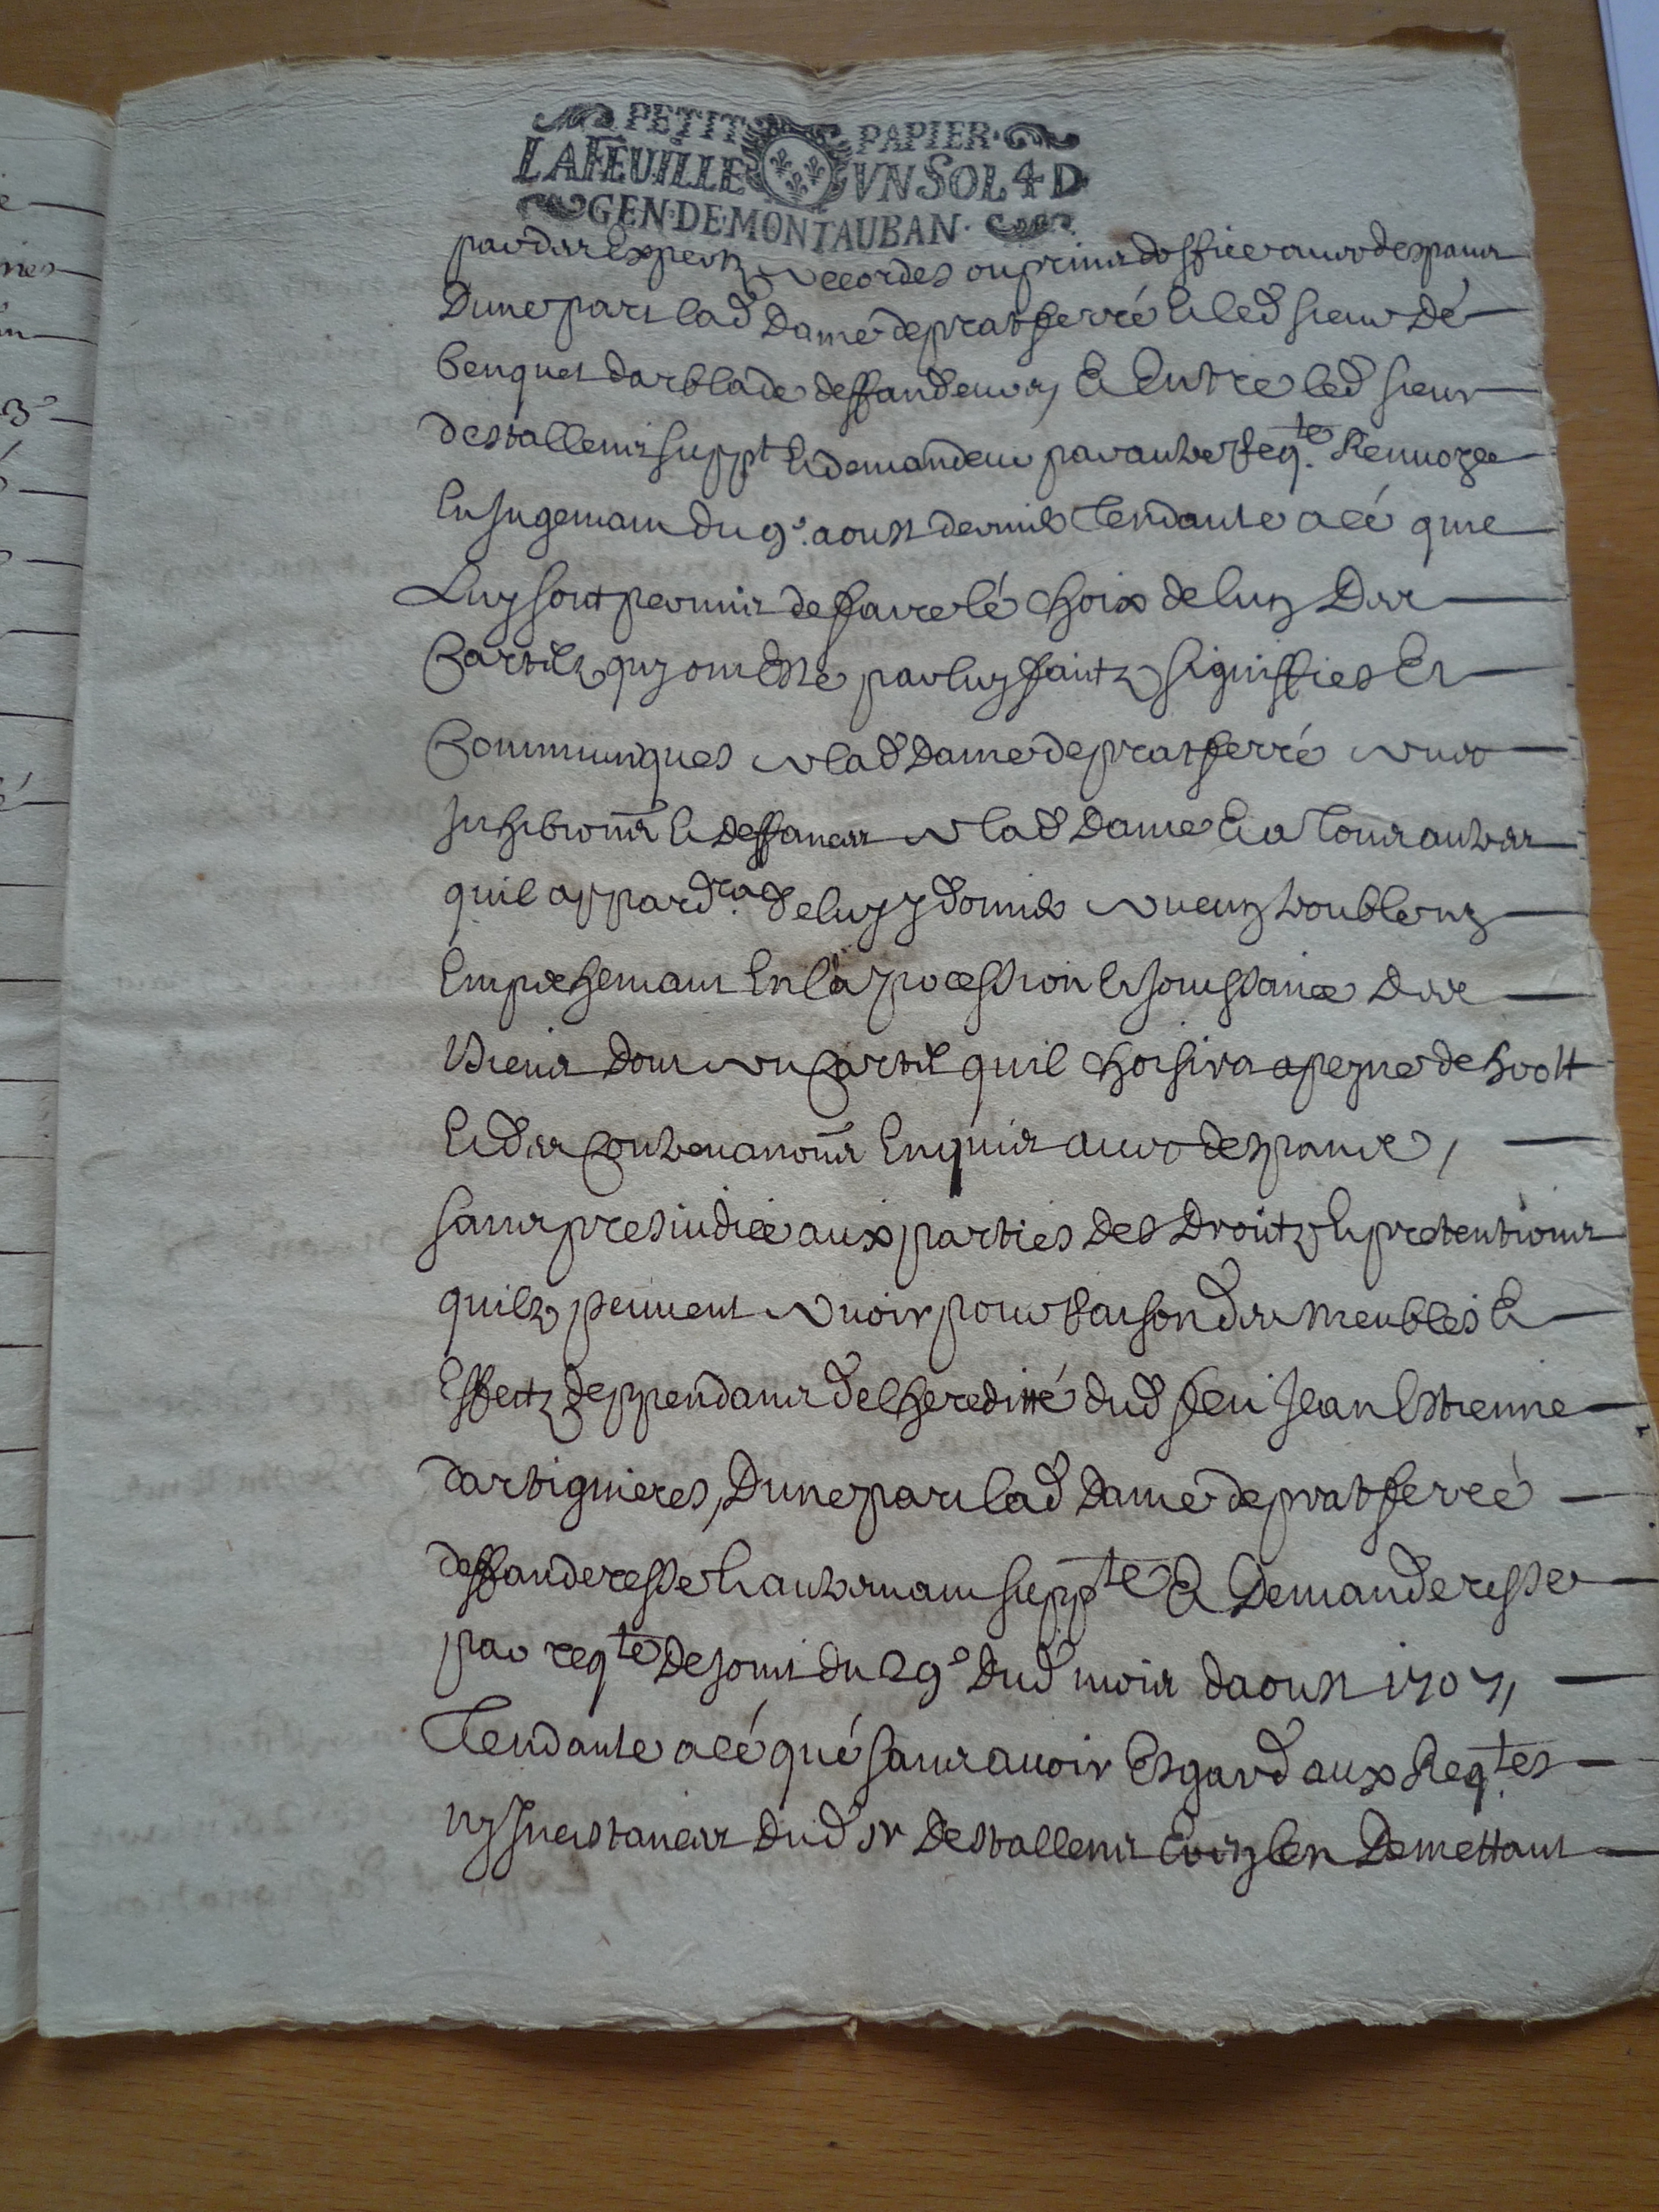 PETIT PAPIER
LA FEUILLE VN SOL 4 D
GEN·DE·MONTAUBAN·
par des Expertz accordes ou prins doffice auec despans
Dune part lad Dame de pratferré et led sieur de
benquet darblade deffandeurs, et Entre led sieur
destallens suppt et demandeur par autre reqte Renuoyee
En jugemant du 9e. aoust dernier Tendante a cé que
Luy soit permis de faire lé choix de lun Des
Partilz quy ont esté par luy faitz signiffies Et
Communiques a lad Dame de pratferré auec
Inhibitions et deffances a lad Dame et a tous autres
quil appardra. de luy y donner aucun trouble ny
Empechemant En la pocession et jouissance des
biens dont au partil quil choisira a peyne de
et des contreuantions Enquis auec despans,
sans presiudice aux parties des Droitz et pretentions
quilz peuuent auoir pour raison des meubles et
Effectz deppendans de lheredité dud feu Jean Estienne
dartiguieres, Dune part lad Dame de pratferré
deffanderesse et autremant suppte et Demanderesse
par reqte de joint du 29e dud mois daoust 1707,
Tendante a cé qué sans auoir Esgard aux Reqtes
ny Instances dud sr destallens et len Demettant